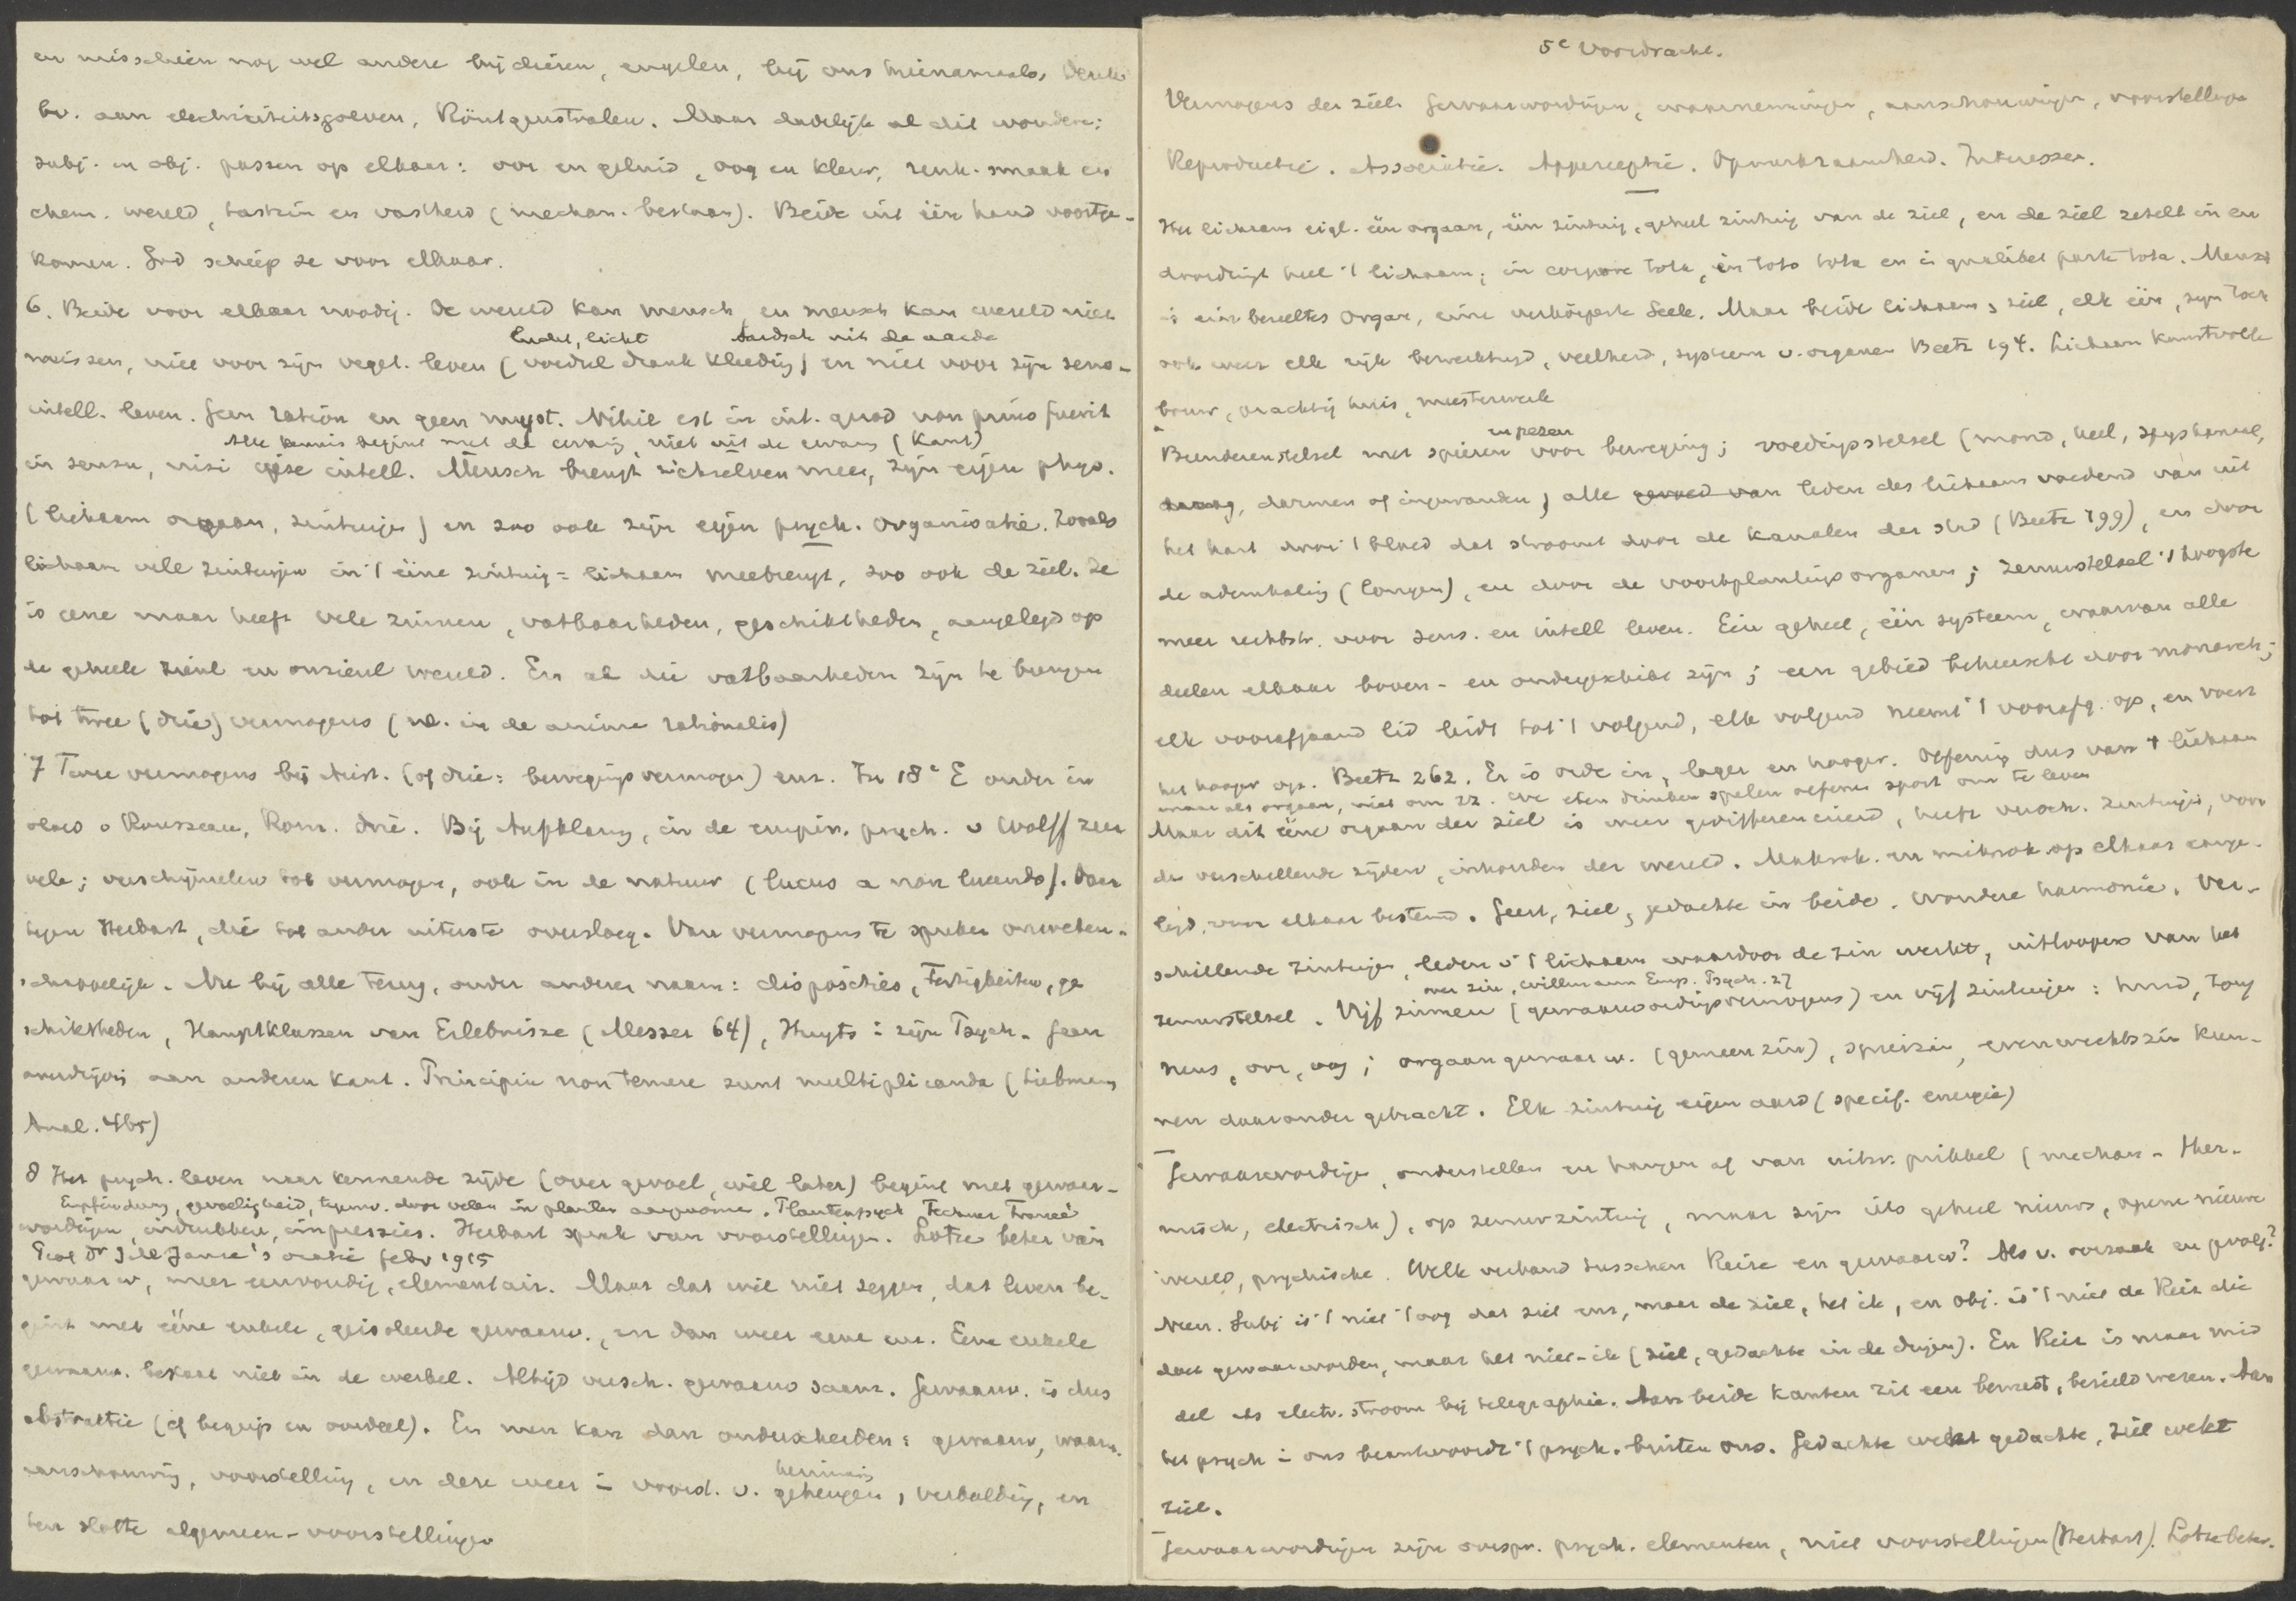 en misschien nog wel andere bij dieren, engelen, bij ons hiernamaals. Denk
bv. aan electriciteitsgolven, Röntgenstralen. Maar dadelijk al dit wondere:
subj. en obj. passen op elkaar: oor en geluid, oog en kleur, reuk. smaak en
chem. wereld, tastzin en vastheid (mechan. bestaan). Beide uit één hand voortge-
komen. God schiep ze voor elkaar.
6. Beide voor elkaar noodig. De wereld kan mensch, en mensch kan wereld niet
lucht, licht aardsch uit de aarde
missen, niet voor zijn veget. leven (voedsel drank kleeding) en niet voor zijn sens-
intell. leven. Geen ration en geen myst. Nihil est in int. quod non prius fuerit
Alle kennis begint met de ervaring, niet uit de ervaring (Kant)
in sensu, nisi ipse intell. Mensch brengt zichzelven mee, zijn eigen phys.
(lichaam orgaan, zintuigen) en zoo ook zijn eigen psych. organisatie. Zooals
lichaam vele zintuigen in 't ééne zintuig = lichaam meebrengt, zoo ook de ziel. Ze
is eene maar heeft vele zinnen, vatbaarheden, geschiktheden, aangelegd op
de geheele zienl en onzienl wereld. En al die vatbaarheden zijn te brengen
tot twee (drie) vermogens (nl. in de anima rationalis)
7 Twee vermogens bij Arist. (of drie: bewegingsvermogen) enz. In 18e E onder in
vloed v Rousseau, Rom. drie. Bij Aufklärung, in de empir. psych. v Wolff zeer
vele; verschijnselen tot vermogen, ook in de natuur (lucus a non lucendo). Daar
tegen Herbart, die tot ander uiterste oversloeg. Van vermogens te spreken onweten-
schappelijk. Nu bij alle terug, onder anderen naam: disposities, Fertigkeiten, ge
schiktheden, Hauptklassen van Erlebnisse (Messer 64), in zijn Psych. Geen
aan anderen kant. Principia non temere sunt multiplicanda (Liebmann
Anal. 465)
8 Het psych. leven naar kennende zijde (over gevoel, wil later) begint met gewaar-
Empfindung, gevoeligheid, tegenw. door velen in planten aangenomen. Plantenpsych Fechner Francé
wordingen, indrukken, impressies. Herbart sprak van voorstellingen. Lotze beter van
Prof Dr J M Janse's oratie febr 1915
gewaarw, meer eenvoudig, elementair. Maar dat wil niet zeggen, dat leven be-
gint met ééne enkele, geisoleerde gewaarw., en dan weer eene enz. Eene enkele
gewaarw. bestaat niet in de werkel. Altijd versch. gewaarw saam. Gewaarw. is dus
abstractie (cf begrip en oordeel). En men kan dan onderscheiden: gewaarw, waarn.
aanschouwing, voorstelling, en deze weer in voorst. v. geheugen, verbeelding, en
herinnering
ten slotte algemeen-voorstellingen
5e Voordracht.
Vermogens der ziel. Gewaarwordingen, waarnemingen, aanschouwingen, voorstellingen
Reproductie. Associatie. Apperceptie. Opmerkzaamheid. Interesse.
Het lichaam eigl. één orgaan, één zintuig, geheel zintuig van de ziel, en de ziel zetelt in en
doordringt heel 't lichaam; in corpore tota, in toto tota en in qualibet parte tota. Mensch
is ein beseeltes Organ, eine verkörperte Seele. Maar beide lichaam, ziel, elk één, zijn toch
ook weer elk rijk bewerktuigd, veelheid, systeem v. organen Beetz 194. Lichaam kunstvolle
bouw, prachtig huis, meesterwerk
Beenderenstelsel met spieren en pezen voor beweging; voedingsstelsel (mond, keel, spijskanaal,
maag, darmen of ingewanden) alle leden des lichaams voedend van uit
het hart door 't bloed dat stroomt door de kanalen der stad (Beetz 199), en door
de ademhaling (longen), en door de voortplantingsorganen; zenuwstelsel 't hoogste
meer rechtstr. voor sens. en intell leven. Eén geheel, één systeem, waarvan alle
deelen elkaar boven- en ondergeschikt zijn; een gebied beheerscht door monarch;
elk voorafgaand lid leidt tot 't volgend, elk volgend neemt 't voorafg. op, en voert
het hooger op. Beetz 262. Er is orde in, lager en hooger. Oefening dus van 't lichaam
maar als orgaan, niet om zz. We eten drinken spelen oefenen sport om te leven
Maar dit ééne orgaan der ziel is weer gedifferentieerd, heeft versch. zintuigen, voor
de verschillende zijden, inhouden der wereld. Makrok. en mikrok op elkaar aange-
legd, voor elkaar bestemd. Geest, ziel, gedachte in beide. Wondere harmonie. Ver-
schillende zintuigen, leden v 't lichaam waardoor de zin werkt, uitloopers van het
over zin, Willmann Emp. Psych. 27
zenuwstelsel. Vijf zinnen (gewaarwordingsvermogens) en vijf zintuigen: huid, tong
neus, oor, oog; orgaangewaarw. (gemeenzin), spierzin, evenwichtszin kun-
nen daaronder gebracht. Elk zintuig eigen aard (specif. energie)
Gewaarwordingen, onderstellen en hangen af van uitw. prikkel (mechan. Ther-
misch, electrisch), op zenuwzintuig, maar zijn iets geheel nieuws, openen nieuwe
wereld, psychische. Welk verband tusschen Reize en gewaarw? Als v. oorzaak en gevolg?
Neen. Subj is 't niet 't oog dat ziet enz, maar de ziel, het ik, en obj. is 't niet de Reiz die
doet gewaarworden, maar het niet-ik (ziel, gedachte in de dingen). En Reiz is maar mid
del als electr. stroom bij telegraphie. Aan beide kanten zit een bewust, bezield wezen. Aan
het psych in ons beantwoordt 't psych. buiten ons. Gedachte wekt gedachte, ziel wekt
ziel.
Gewaarwordingen zijn oorspr. psych. elementen, niet voorstellingen (Herbart). Lotze beter.